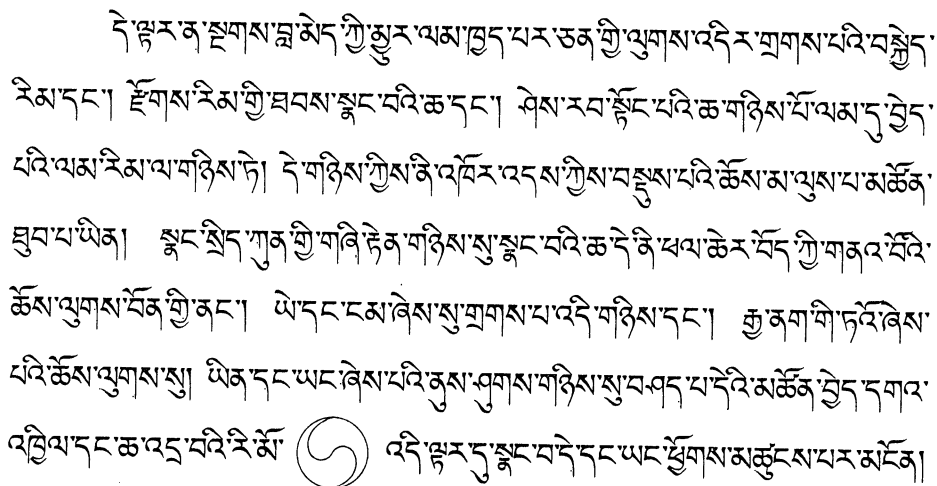 དེ་ལྟར་ན་སྔགས་བླ་མེད་ཀྱི་མྱུར་ལམ་ཁྱད་པར་ཅན་གྱི་ལུགས་འདིར་གྲགས་པའི་བསྐྱེད་
རིམ་དང་། རྫོགས་རིམ་གྱི་ཐབས་སྣང་བའི་ཆ་དང་། ཤེས་རབ་སྟོང་པའི་ཆ་གཉིས་པོ་ལམ་དུ་བྱེད་
པའི་ལམ་རིམ་ལ་གཉིས་ཏེ། དེ་གཉིས་ཀྱིས་ནི་འཁོར་འདས་ཀྱིས་བསྡུས་པའི་ཆོས་མ་ལུས་པ་མཚོན་
ཐུབ་པ་ཡིན། སྣང་སྲིད་ཀུན་གྱི་གཞི་རྟེན་གཉིས་སུ་སྣང་བའི་ཆ་དེ་ནི་ཕལ་ཆེར་བོད་ཀྱི་གནའ་བོའི་
ཆོས་ལུགས་བོན་གྱི་ནང་། ཡེ་དང་ངམ་ཞེས་སུ་གྲགས་པ་འདི་གཉིས་དང་། རྒྱ་ནག་གི་ཏའོ་ཞེས་
པའི་ཆོས་ལུགས་སུ། ཡིན་དང་ཡང་ཞེས་པའི་ནུས་ཤུགས་གཉིས་སུ་བཤད་པ་དེའི་མཚོན་བྱེད་དགའ་
འཁྱིལ་དང་ཆ་འདྲ་བའི་རི་མོ་ འདི་ལྟར་དུ་སྣང་བ་དེ་དང་ཡང་ཕྱོགས་མཚུངས་པར་མངོན།